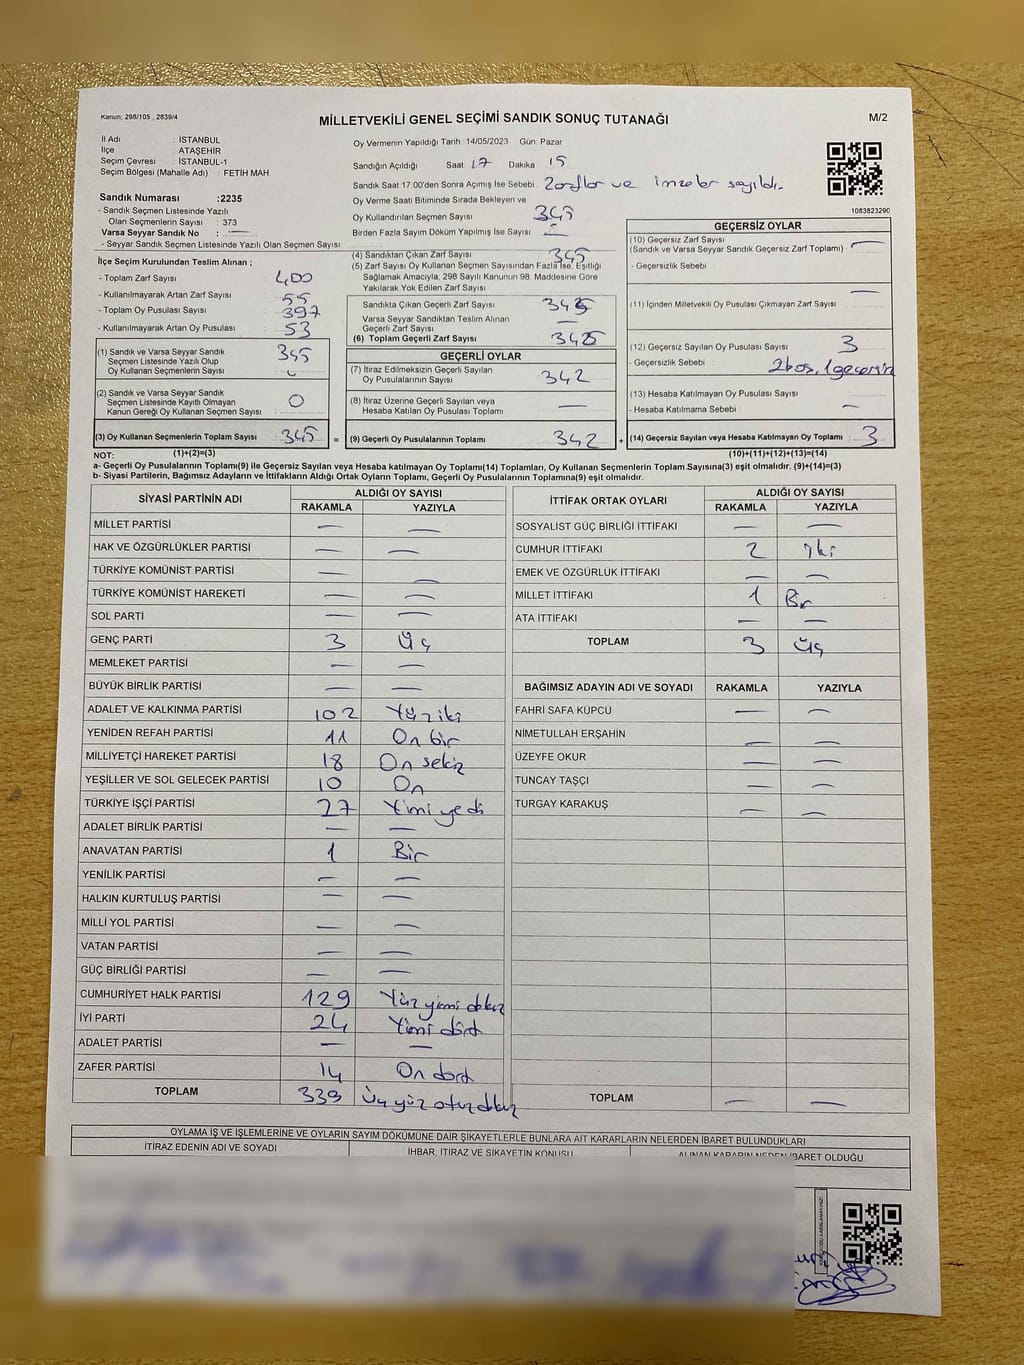 Kanun; 298/105 , 2839/4
MİLLETVEKİLİ GENEL SEÇİMİ SANDIK SONUÇ TUTANAĞI
M/2
İl Adı : İSTANBUL
İlçe : ATAŞEHİR
Seçim Çevresi : İSTANBUL-1
Seçim Bölgesi (Mahalle Adı) : FETİH MAH.
Sandık Numarası :2235
- Sandık Seçmen Listesinde Yazılı
Olan Seçmenlerin Sayısı : 373
Varsa Seyyar Sandık No : —
- Seyyar Sandık Seçmen Listesinde Yazılı Olan Seçmen Sayısı:
Oy Vermenin Yapıldığı Tarih :14/05/2023 Gün: Pazar
Sandığın Açıldığı Saat 17 Dakika 15
Sandık Saat 17:00'den Sonra Açımış İse Sebebi Zarflar ve imzalar sayıldı.
Oy Verme Saati Bitiminde Sırada Bekleyen ve
Oy Kullandırılan Seçmen Sayısı 345
Birden Fazla Sayım Döküm Yapılmış İse Sayısı —
1083823290
İlçe Seçim Kurulundan Teslim Alınan ;
- Toplam Zarf Sayısı 400
- Kullanılmayarak Artan Zarf Sayısı 55
- Toplam Oy Pusulası Sayısı 397
- Kullanılmayarak Artan Oy Pusulası 53
(1) Sandık ve Varsa Seyyar Sandık
Seçmen Listesinde Yazılı Olup
Oy Kullanan Seçmenlerin Sayısı 345
(2) Sandık ve Varsa Seyyar Sandık
Seçmen Listesinde Kayıtlı Olmayan
Kanun Gereği Oy Kullanan Seçmen Sayısı 0
(3) Oy Kullanan Seçmenlerin Toplam Sayısı 345 =
(4) Sandıktan Çıkan Zarf Sayısı 345
(5) Zarf Sayısı Oy Kullanan Seçmen Sayısından Fazla İse, Eşitliği
Sağlamak Amacıyla, 298 Sayılı Kanunun 98. Maddesine Göre
Yakılarak Yok Edilen Zarf Sayısı
Sandıkta Çıkan Geçerli Zarf Sayısı 345
Varsa Seyyar Sandıktan Teslim Alınan
Geçerli Zarf Sayısı —
(6) Toplam Geçerli Zarf Sayısı 345
GEÇERLİ OYLAR
(7) İtiraz Edilmeksizin Geçerli Sayılan
Oy Pusulalarının Sayısı 342
(8) İtiraz Üzerine Geçerli Sayılan veya
Hesaba Katılan Oy Pusulası Toplamı —
(9) Geçerli Oy Pusulalarının Toplamı 342 +
GEÇERSİZ OYLAR
(10) Geçersiz Zarf Sayısı
(Sandık ve Varsa Seyyar Sandık Geçersiz Zarf Toplamı) —
- Geçersizlik Sebebi
(11) İçinden Milletvekili Oy Pusulası Çıkmayan Zarf Sayısı —
(12) Geçersiz Sayılan Oy Pusulası Sayısı 3
- Geçersizlik Sebebi : 2 boş, 1 geçersiz
(13) Hesaba Katılmayan Oy Pusulası Sayısı
- Hesaba Katılmama Sebebi —
(14) Geçersiz Sayılan veya Hesaba Katılmayan Oy Toplamı 3
NOT: (1)+(2)=(3) (10)+(11)+(12)+(13)=(14)
a- Geçerli Oy Pusulalarının Toplamı(9) ile Geçersiz Sayılan veya Hesaba katılmayan Oy Toplamı(14) Toplamları, Oy Kullanan Seçmenlerin Toplam Sayısına(3) eşit olmalıdır. (9)+(14)=(3)
b- Siyasi Partilerin, Bağımsız Adayların ve İttifakların Aldığı Ortak Oyların Toplamı, Geçerli Oy Pusulalarının Toplamına(9) eşit olmalıdır.
SİYASİ PARTİNİN ADI ALDIĞI OY SAYISI
RAKAMLA YAZIYLA
MİLLET PARTİSİ — —
HAK VE ÖZGÜRLÜKLER PARTİSİ — —
TÜRKİYE KOMÜNİST PARTİSİ — —
TÜRKİYE KOMÜNİST HAREKETİ — —
SOL PARTİ — —
GENÇ PARTİ 3 Üç
MEMLEKET PARTİSİ — —
BÜYÜK BİRLİK PARTİSİ — —
ADALET VE KALKINMA PARTİSİ 102 Yüz iki
YENİDEN REFAH PARTİSİ 11 On bir
MİLLİYETÇİ HAREKET PARTİSİ 18 On sekiz
YEŞİLLER VE SOL GELECEK PARTİSİ 10 On
TÜRKİYE İŞÇİ PARTİSİ 27 Yirmi yedi
ADALET BİRLİK PARTİSİ — —
ANAVATAN PARTİSİ 1 Bir
YENİLİK PARTİSİ — —
HALKIN KURTULUŞ PARTİSİ — —
MİLLİ YOL PARTİSİ — —
VATAN PARTİSİ — —
GÜÇ BİRLİĞİ PARTİSİ — —
CUMHURİYET HALK PARTİSİ 129 Yüz yirmi dokuz
İYİ PARTİ 24 Yirmi dört
ADALET PARTİSİ — —
ZAFER PARTİSİ 14 On dört
TOPLAM 339 Üç yüz otuz dokuz
İTTİFAK ORTAK OYLARI ALDIĞI OY SAYISI
RAKAMLA YAZIYLA
SOSYALİST GÜÇ BİRLİĞİ İTTİFAKI — —
CUMHUR İTTİFAKI 2 iki
EMEK VE ÖZGÜRLÜK İTTİFAKI — —
MİLLET İTTİFAKI 1 Bir
ATA İTTİFAKI — —
TOPLAM 3 üç
BAĞIMSIZ ADAYIN ADI VE SOYADI RAKAMLA YAZIYLA
FAHRİ SAFA KÜPCÜ — —
NİMETULLAH ERŞAHİN — —
ÜZEYFE OKUR — —
TUNCAY TAŞÇI — —
TURGAY KARAKUŞ — —
TOPLAM — —
OYLAMA İŞ VE İŞLEMLERİNE VE OYLARIN SAYIM DÖKÜMÜNE DAİR ŞİKAYETLERLE BUNLARA AİT KARARLARIN NELERDEN İBARET BULUNDUKLARI
İTİRAZ EDENİN ADI VE SOYADI İHBAR, İTİRAZ VE ŞİKAYETİN KONUSU ALINAN KARARIN NEDEN İBARET OLDUĞU